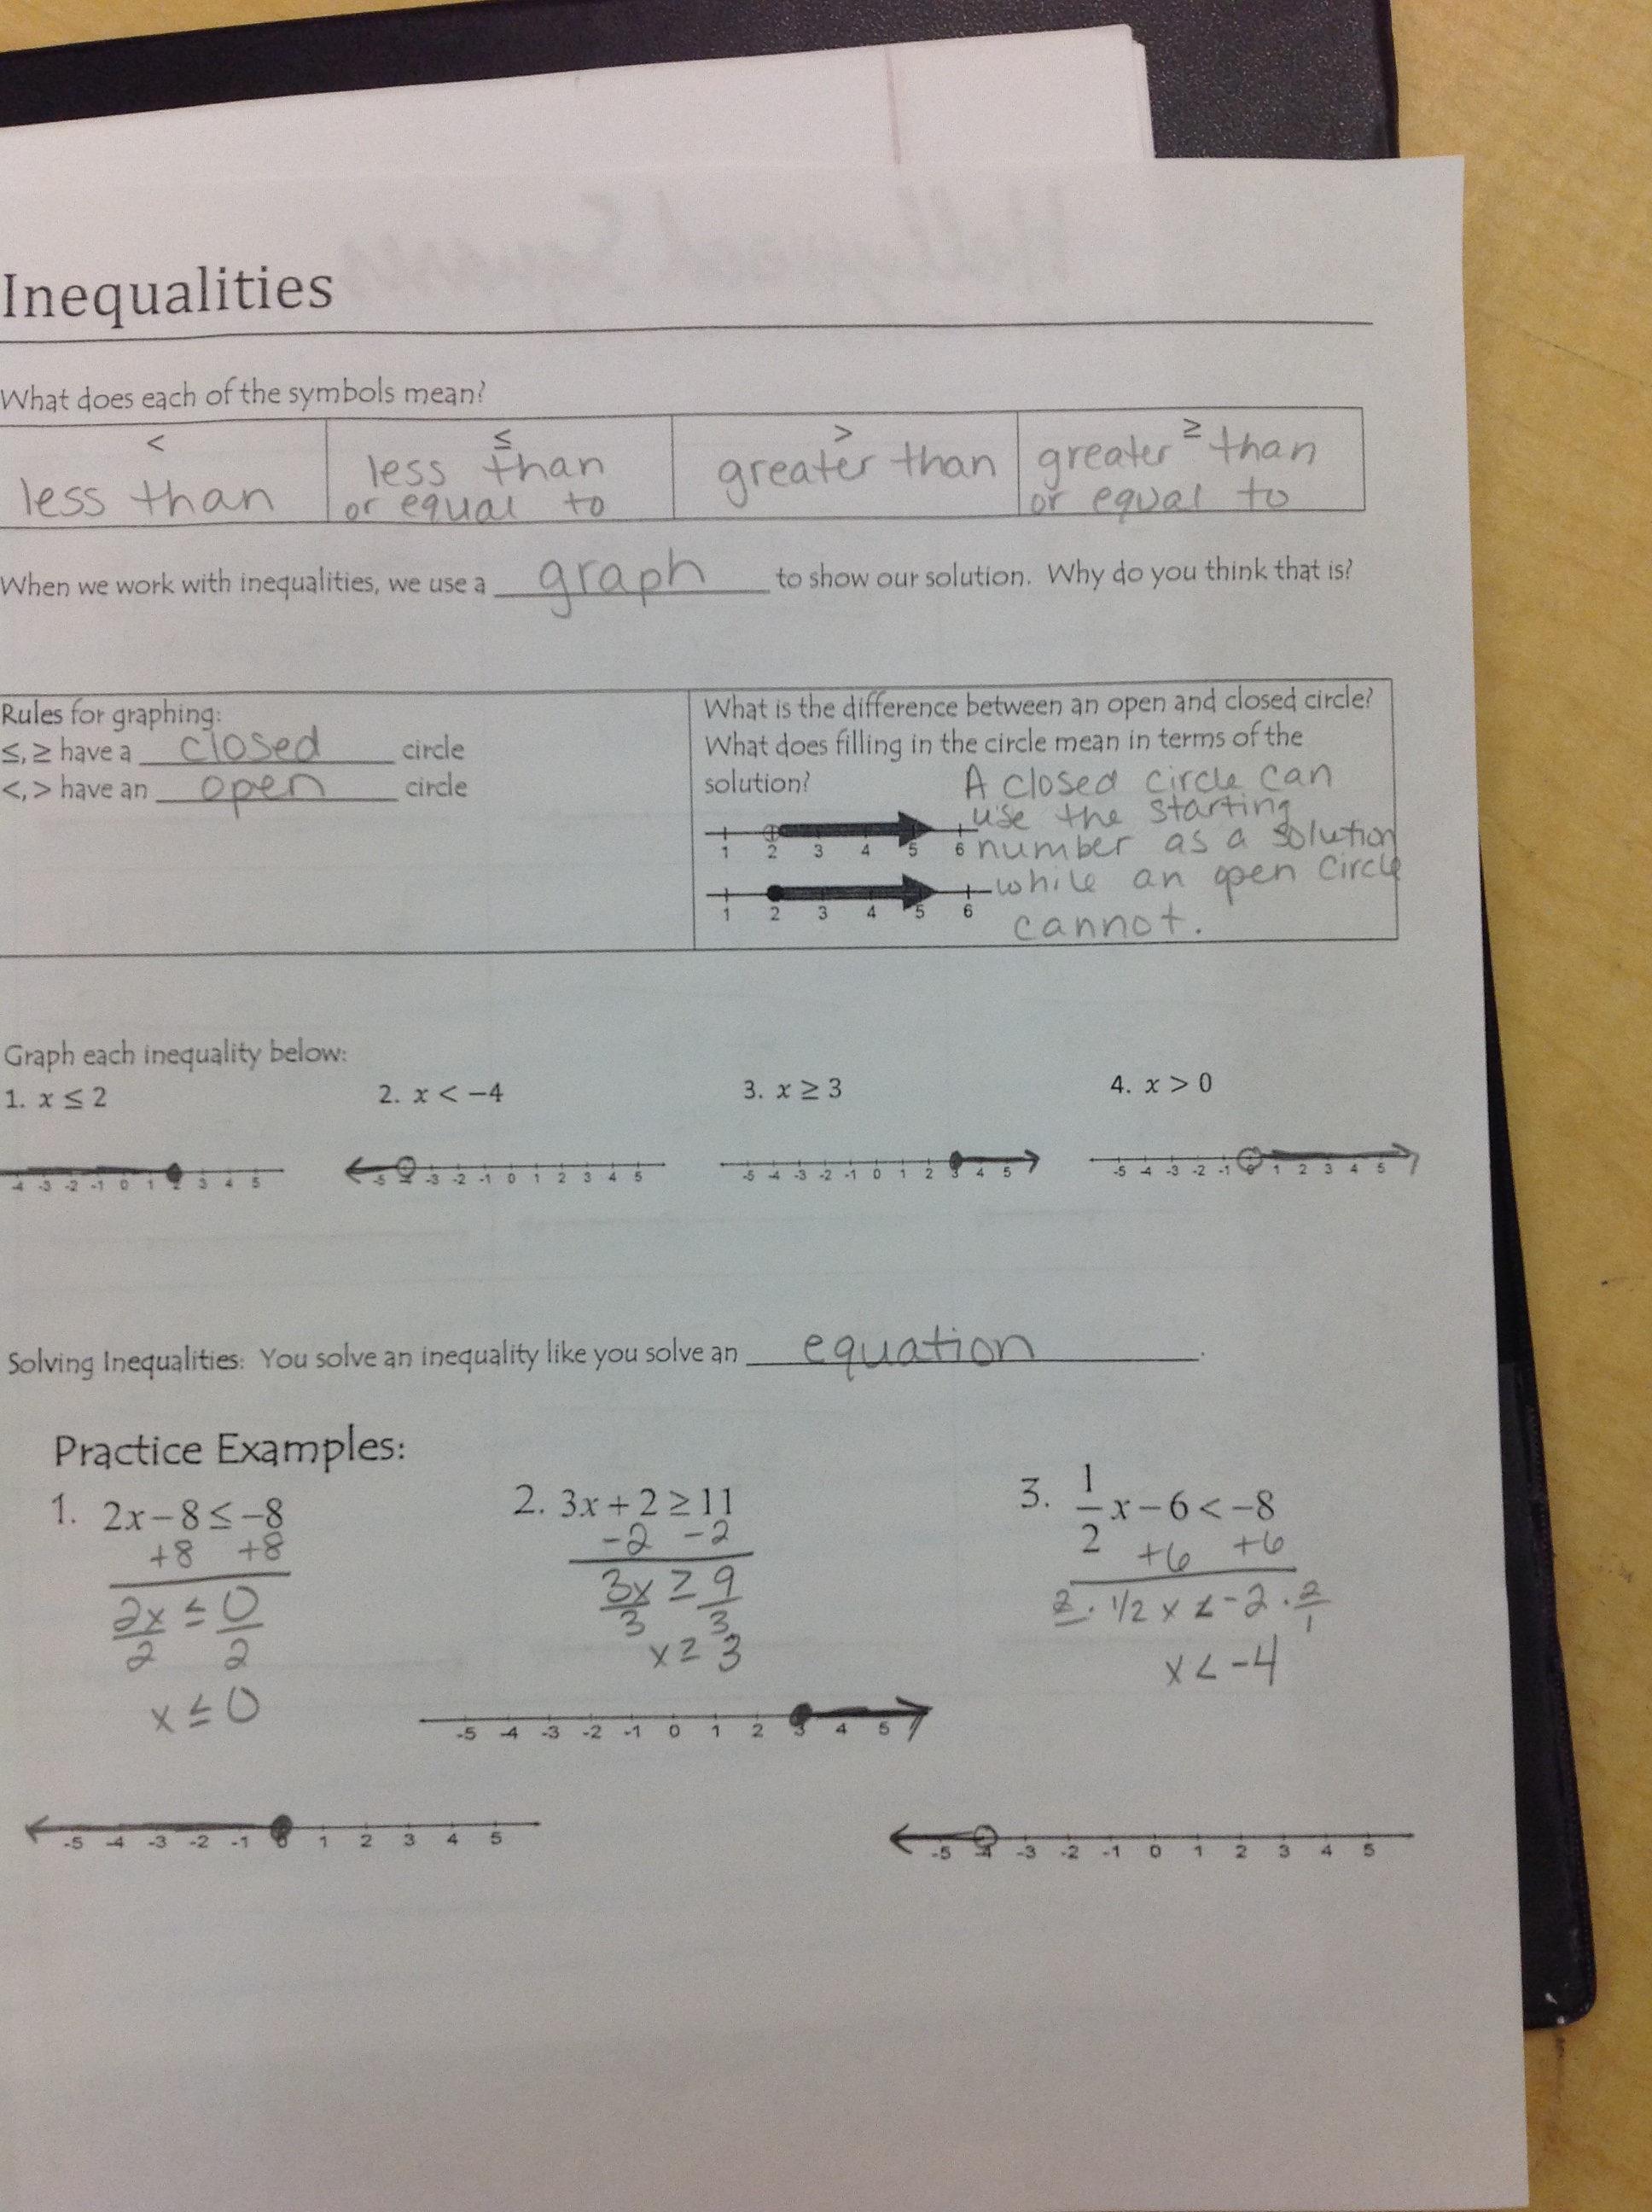 Inequalities
What does each of the symbols mean?
< ≤ > ≥
less than less than or equal to greater than greater than or equal to
When we work with inequalities, we use a graph to show our solution. Why do you think that is?
Rules for graphing:
≤, ≥ have a closed circle
<, > have an open circle
What is the difference between an open and closed circle?
What does filling in the circle mean in terms of the
solution? A closed circle can
use the starting
number as a solution
while an open circle
cannot.
1 2 3 4 5 6
1 2 3 4 5 6
Graph each inequality below:
1. x ≤ 2 2. x < −4 3. x ≥ 3 4. x > 0
-4 -3 -2 -1 0 1 2 3 4 5
-5 -4 -3 -2 -1 0 1 2 3 4 5
-5 -4 -3 -2 -1 0 1 2 3 4 5
-5 -4 -3 -2 -1 0 1 2 3 4 5
Solving Inequalities: You solve an inequality like you solve an equation.
Practice Examples:
1. 2x − 8 ≤ −8
+8 +8
2x/2 ≤ 0/2
x ≤ 0
-5 -4 -3 -2 -1 0 1 2 3 4 5
2. 3x + 2 ≥ 11
-2 -2
3x/3 ≥ 9/3
x ≥ 3
-5 -4 -3 -2 -1 0 1 2 3 4 5
3. 1/2 x − 6 < −8
+6 +6
2 · 1/2 x < -2 · 2/1
x < -4
-5 -4 -3 -2 -1 0 1 2 3 4 5